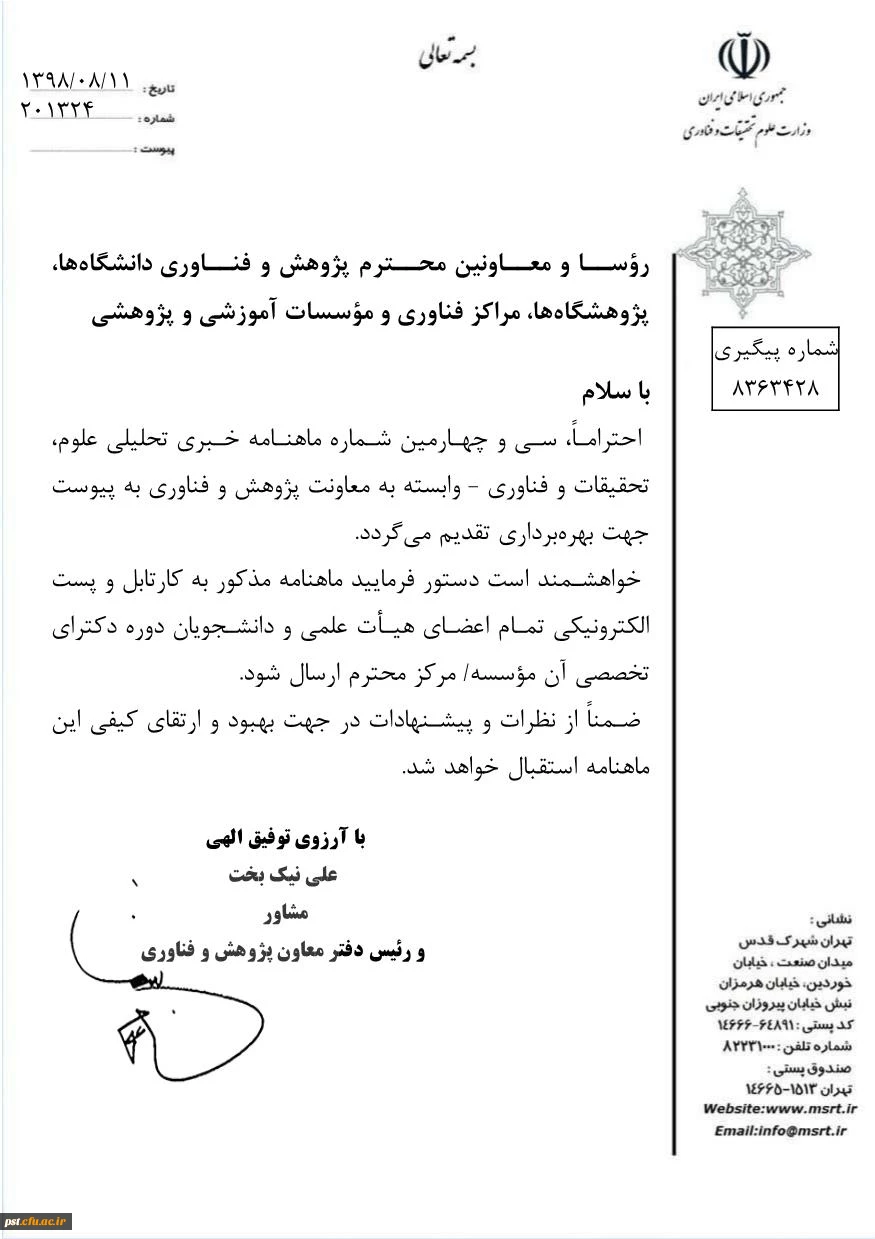 بسمه تعالی
جمهوری اسلامی ایران
وزارت علوم تحقیقات و فناوری
تاریخ: ۱۳۹۸/۰۸/۱۱
شماره: ۲۰۱۳۲۴
پیوست:
رؤسا و معاونین محترم پژوهش و فناوری دانشگاه‌ها،
پژوهشگاه‌ها، مراکز فناوری و مؤسسات آموزشی و پژوهشی
شماره پیگیری
۸۳۶۳۴۲۸
با سلام
احتراماً، سی و چهارمین شماره ماهنامه خبری تحلیلی علوم،
تحقیقات و فناوری – وابسته به معاونت پژوهش و فناوری به پیوست
جهت بهره‌برداری تقدیم می‌گردد.
خواهشمند است دستور فرمایید ماهنامه مذکور به کارتابل و پست
الکترونیکی تمام اعضای هیأت علمی و دانشجویان دوره دکترای
تخصصی آن مؤسسه/ مرکز محترم ارسال شود.
ضمناً از نظرات و پیشنهادات در جهت بهبود و ارتقای کیفی این
ماهنامه استقبال خواهد شد.
با آرزوی توفیق الهی
علی نیک بخت
مشاور
و رئیس دفتر معاون پژوهش و فناوری
نشانی:
تهران شهرک قدس
میدان صنعت، خیابان
خوردین، خیابان هرمزان
نبش خیابان پیروزان جنوبی
کد پستی: ۶۴۸۹۱-۱۴۶۶۶
شماره تلفن: ۸۲۲۳۱۰۰۰
صندوق پستی:
تهران ۱۵۱۳-۱۴۶۶۵
Website:www.msrt.ir
Email:info@msrt.ir
pst.cfu.ac.ir